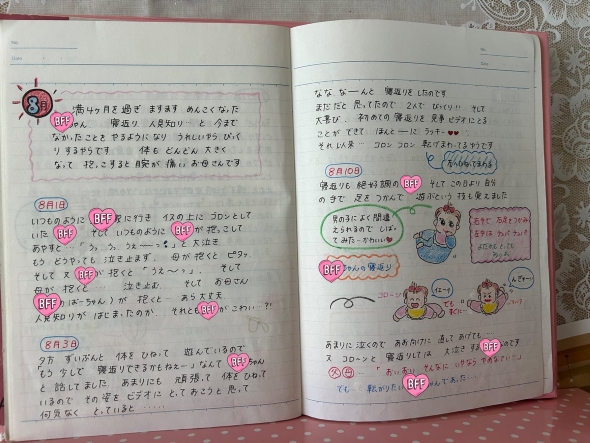 8月
満4ヶ月を過ぎ ますます めんこくなった
BFFちゃん 寝返り 人見知り…と 今まで
なかったことを やるようになり うれしいやら びっく
りするやらです 体も どんどん 大きく
なって 抱っこすると 腕が 痛い お母さんです
8月1日
いつものように BFF 家に行き イスの上に コロンとして
いた BFF そして いつものように BFFが 抱っこして
あやすと… と大泣き
もう どうやっても 泣き止まず、母が抱くと ピタッ。
そして 又 BFFが抱くと 「うえ〜っ。」 そして
母が抱くと…… 泣き止む。 そして お母さん
BFFのばーちゃん)が 抱くと… あら大丈夫。
人見知りが はじまったのか、それとも BFFが こわい…?!
8月3日
夕方 ずいぶんと 体をひねって 遊んでいるので
「もう少しで 寝返りできるかもねえ…」なんて BFFちゃん
と 話してました あまりにも 頑張って 体をひねって
いるので その姿を ビデオに とっておこうと 思って
何気なく とっていると ……
なな なーんと 寝返りを したのです
まだだと 思ってたので 2人で びっくり!! そして
大喜び。初めての 寝返りを 見事 ビデオにとる
ことが できて ほんとーに ラッキー♥♥
それ以来… コロン コロン 転がりまわってる やすです
8月10日
寝返りも 絶好調の BFF そして この日より 自分
の手で 足を つかんで 遊ぶという 技も覚えました
男の子に よく間違
えられるので しばっ
てみた…かわいい♥
右手で 右足をつかみ
BFFちゃんの 寝返り
コローン
でも
すぐに…
あまりに 泣くので あお向けに 直してあげても
又 コローンと 寝返りしては 大泣きする BFFのです
父 母 … 「おいおい そんなに いやなら やめなさい…」
でも… 転がりたい BFFちゃんであった…